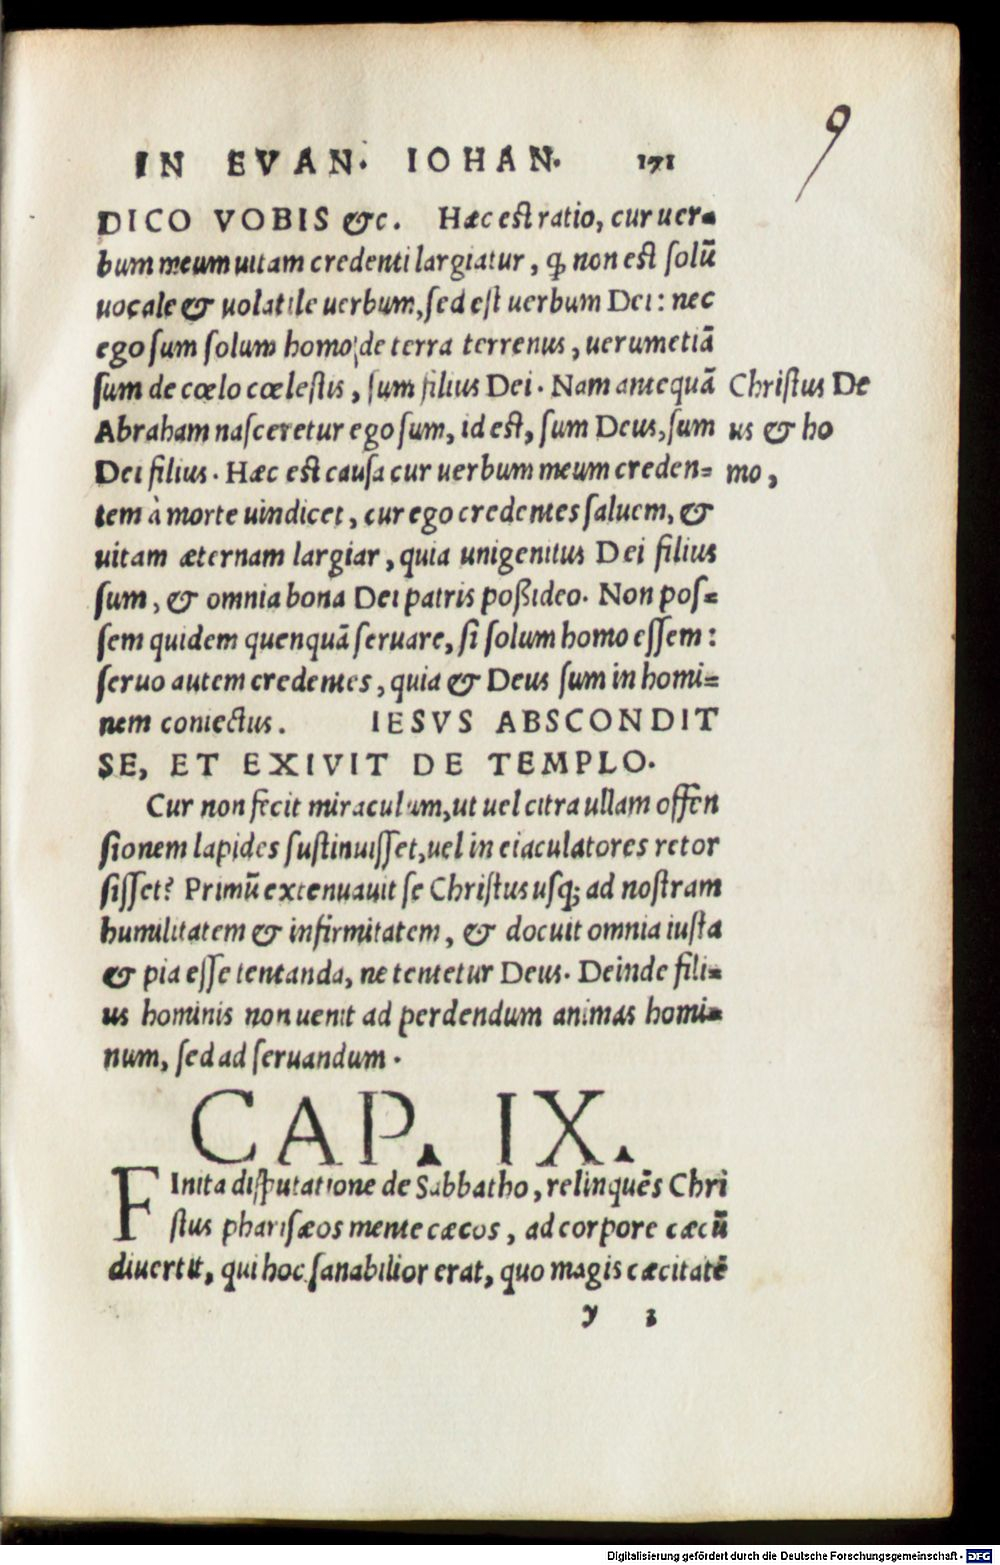 9
IN EVAN. IOHAN. 171
DICO VOBIS &c. Hæc est ratio, cur uer=
bum meum uitam credenti largiatur, ꝙ non est solū
uocale & uolatile uerbum, sed est uerbum Dei: nec
ego sum solum homo de terra terrenus, uerumetiā
sum de cœlo cœlestis, sum filius Dei. Nam antequā
Christus De
Abraham nasceretur ego sum, id est, sum Deus, sum
us & ho
Dei filius. Hæc est causa cur uerbum meum creden=
mo,
tem à morte uindicet, cur ego credentes saluem, &
uitam æternam largiar, quia unigenitus Dei filius
sum, & omnia bona Dei patris poßideo. Non pos=
sem quidem quenquā seruare, si solum homo essem:
seruo autem credentes, quia & Deus sum in homi=
nem coniectus. IESVS ABSCONDIT
SE, ET EXIVIT DE TEMPLO.
Cur non fecit miraculum, ut uel citra ullam offen
sionem lapides sustinuisset, uel in eiaculatores retor
sisset? Primū extenuauit se Christus usq; ad nostram
humilitatem & infirmitatem, & docuit omnia iusta
& pia esse tentanda, ne tentetur Deus. Deinde fili=
us hominis non uenit ad perdendum animas homi=
num, sed ad seruandum.
CAP. IX.
FInita disputatione de Sabbatho, relinquēs Chri
stus pharisæos mente cæcos, ad corpore cæcū
diuertit, qui hoc sanabilior erat, quo magis cæcitatē
y 3
Digitalisierung gefördert durch die Deutsche Forschungsgemeinschaft - DFG